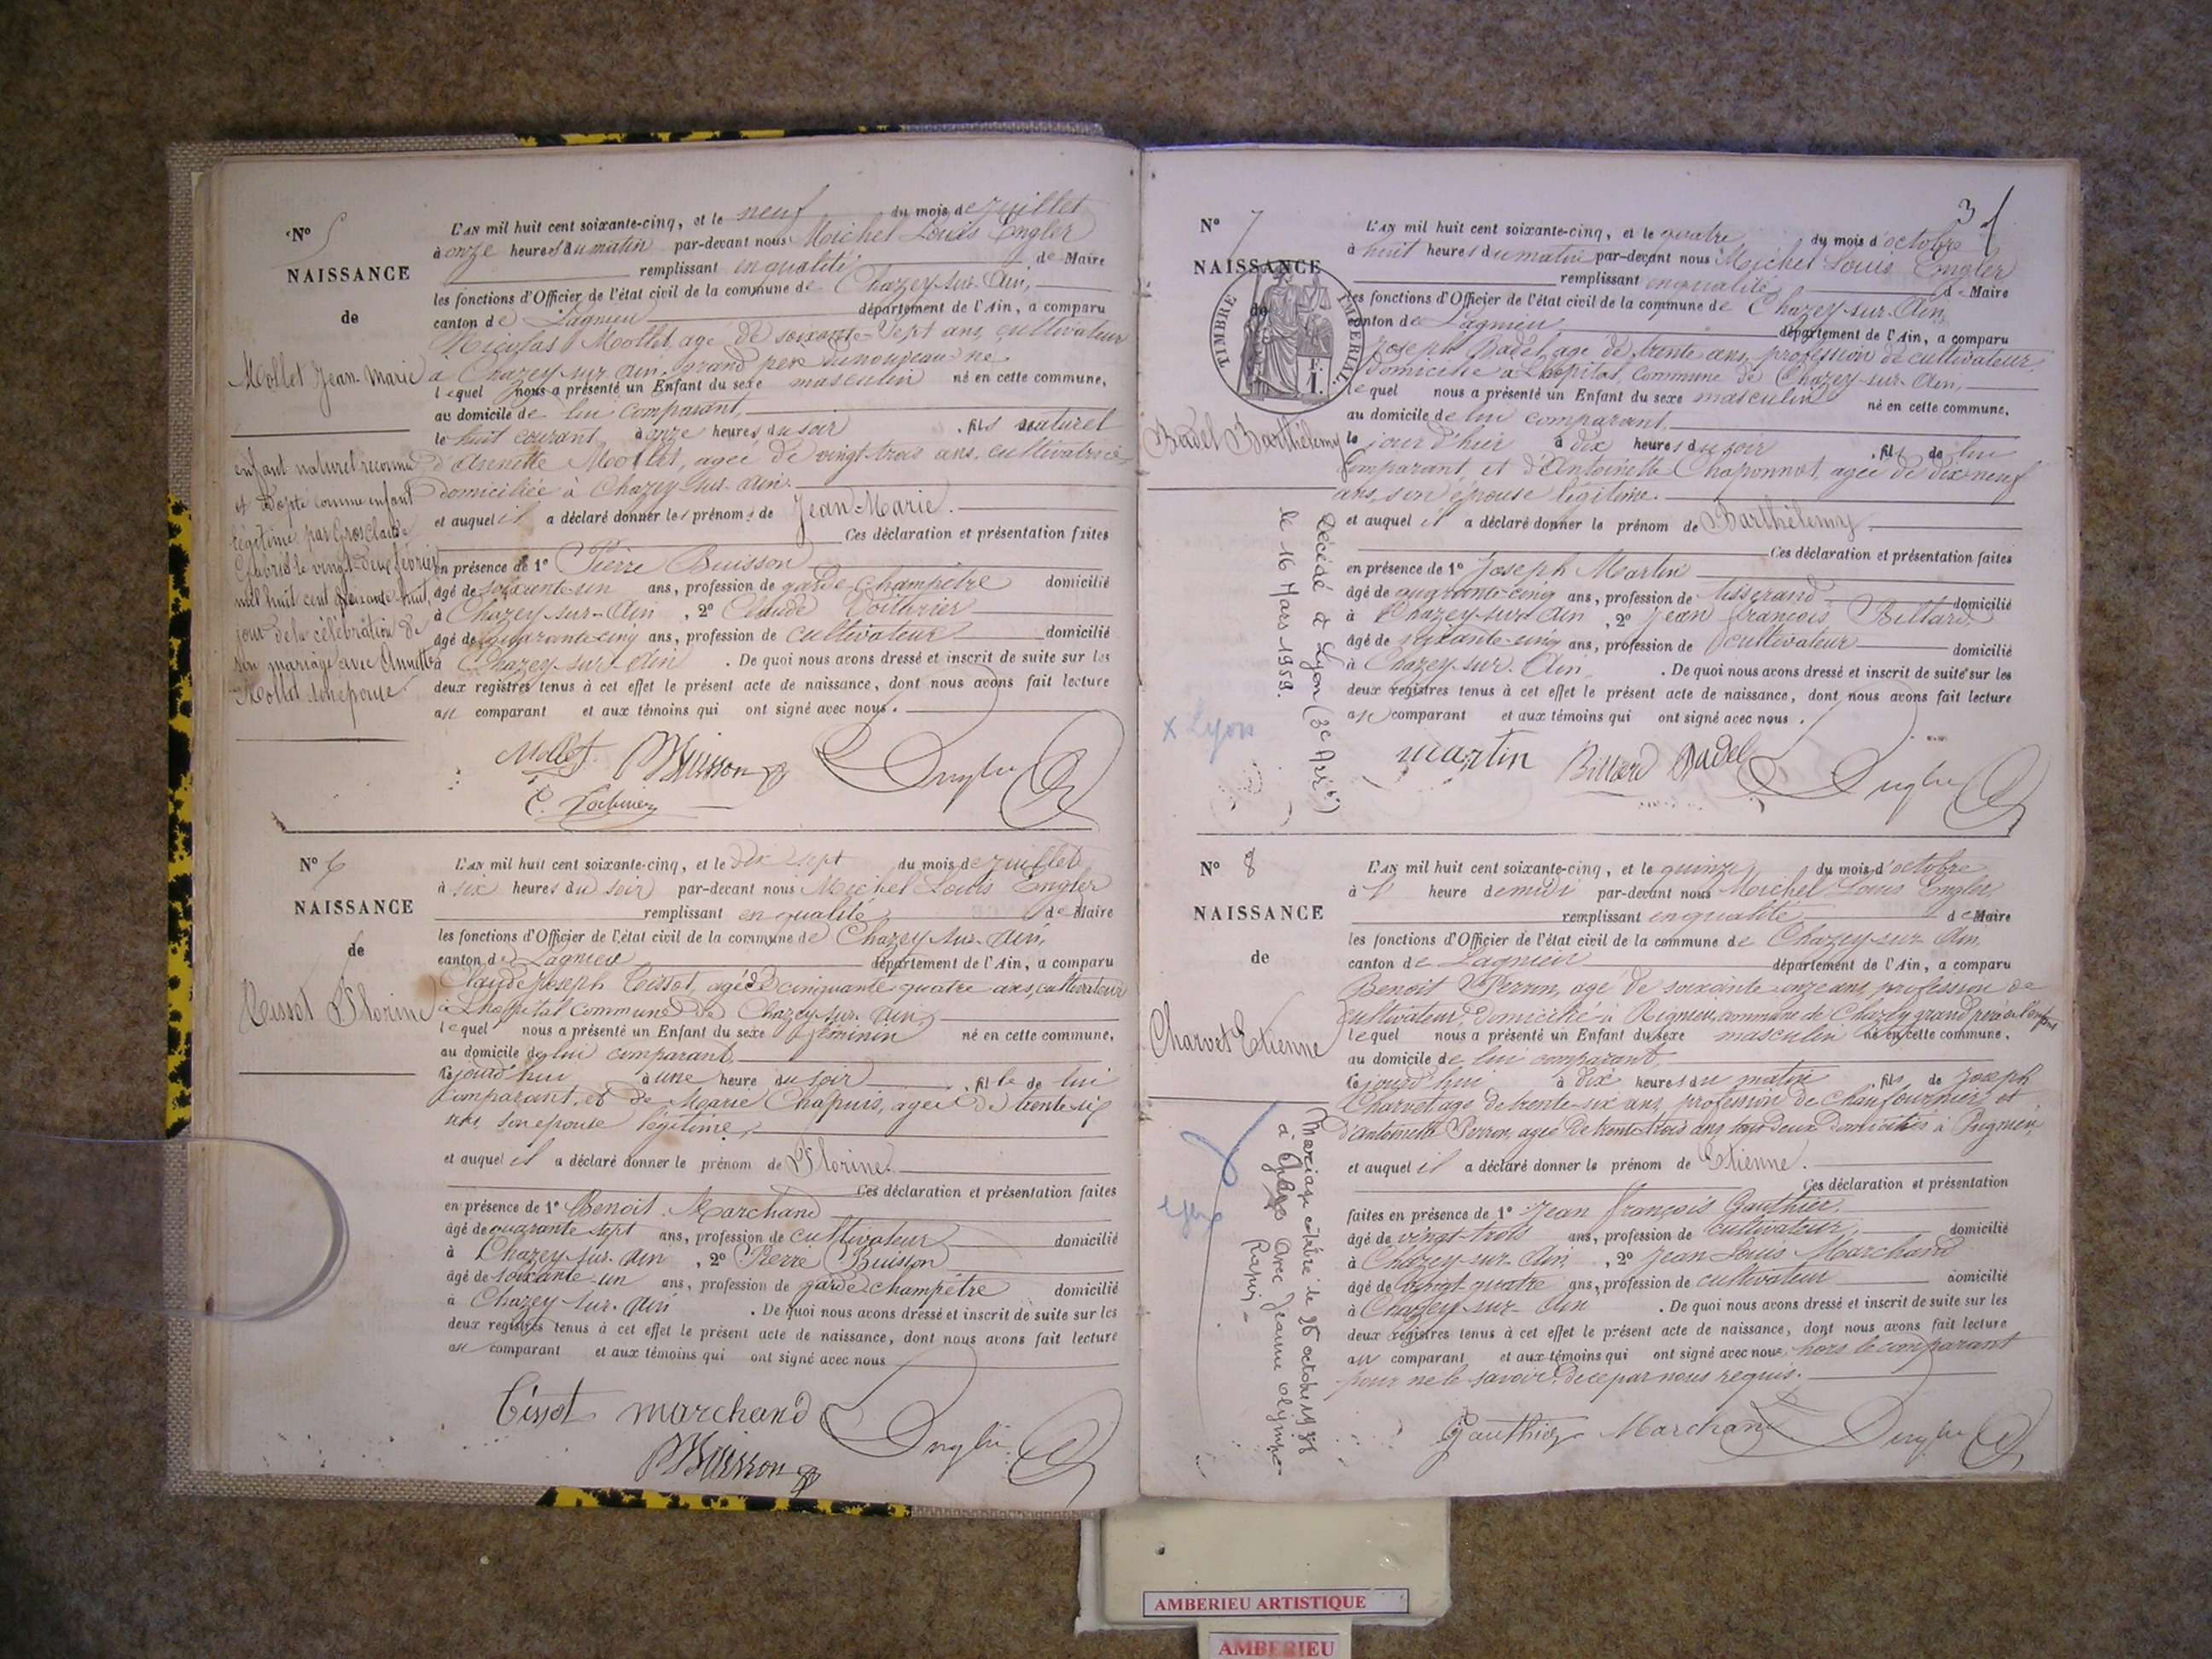 N° 5
NAISSANCE
de
Mollet Jean-Marie
enfant naturel reconnu
et adopté comme enfant
légitime par Gros Claude
le vingt deux février
mil huit cent soixante huit,
jour de la célébration de
son mariage avec Annette
Mollet son épouse.
L'AN mil huit cent soixante-cinq, et le neuf du mois de juillet
à onze heures du matin par-devant nous Michel Louis Engler
remplissant en qualité de Maire
les fonctions d'Officier de l'état civil de la commune de Chazey-sur-Ain,
canton de Lagnieu département de l'Ain, a comparu
Nicolas Mollet, agé de soixante-sept ans, cultivateur
a Chazey-sur-Ain, grand père du nouveau né
lequel nous a présenté un Enfant du sexe masculin né en cette commune,
au domicile de lui comparant,
le huit courant à onze heures du soir , fils naturel
d'Annette Mollet, agée de vingt-trois ans, cultivatrice
domiciliée à Chazey-sur-Ain.
et auquel il a déclaré donner les prénoms de Jean-Marie.
Ces déclaration et présentation faites
en présence de 1° Pierre Buisson
âgé de soixante-un ans, profession de garde-champêtre domicilié
à Chazey-sur-Ain , 2° Claude Voiturier
âgé de quarante-cinq ans, profession de cultivateur domicilié
à Chazey-sur-Ain . De quoi nous avons dressé et inscrit de suite sur les
deux registres tenus à cet effet le présent acte de naissance, dont nous avons fait lecture
au comparant et aux témoins qui ont signé avec nous.
Mollet PBuisson Engler
C. Voiturier
N° 6
NAISSANCE
de
Tissot Florine
L'AN mil huit cent soixante-cinq, et le dix sept du mois de juillet
à six heures du soir par-devant nous Michel Louis Engler
remplissant en qualité de Maire
les fonctions d'Officier de l'état civil de la commune de Chazey-sur-Ain,
canton de Lagnieu département de l'Ain, a comparu
Claude Joseph Tissot, agé de cinquante quatre ans, cultivateur
à Lhopital commune de Chazey-sur-Ain,
lequel nous a présenté un Enfant du sexe féminin né en cette commune,
au domicile de lui comparant
cejourd'hui à une heure du soir , fille de lui
comparant, et de Marie Chapuis, agée de trente-six
ans, son épouse légitime,
et auquel il a déclaré donner le prénom de Florine.
Ces déclaration et présentation faites
en présence de 1° Benoit Marchand
âgé de quarante sept ans, profession de cultivateur domicilié
à Chazey-sur-Ain , 2° Pierre Buisson
âgé de soixante-un ans, profession de garde-champêtre domicilié
à Chazey-sur-Ain . De quoi nous avons dressé et inscrit de suite sur les
deux registres tenus à cet effet le présent acte de naissance, dont nous avons fait lecture
au comparant et aux témoins qui ont signé avec nous
Tissot marchand Engler
PBuisson
3
N° 7
NAISSANCE
de
TIMBRE IMPERIAL
F. 1.
Badel Barthélemy
Décédé à Lyon (3e Arrt)
le 16 Mars 1959.
x Lyon
L'AN mil huit cent soixante-cinq, et le quatre du mois d'octobre
à huit heures du matin par-devant nous Michel Louis Engler
remplissant en qualité de Maire
les fonctions d'Officier de l'état civil de la commune de Chazey-sur-Ain,
canton de Lagnieu, département de l'Ain, a comparu
Joseph Badel, agé de trente ans, profession de cultivateur,
domicilié à Lhopital, commune de Chazey-sur-Ain,
lequel nous a présenté un Enfant du sexe masculin né en cette commune,
au domicile de lui comparant.
le jour d'hier à dix heures du soir , fils de lui
comparant, et d'Antoinette Chaponnot, agée de dix-neuf
ans, son épouse légitime.
et auquel il a déclaré donner le prénom de Barthélemy.
Ces déclaration et présentation faites
en présence de 1° Joseph Martin
âgé de quarante-cinq ans, profession de tisserand domicilié
à Chazey-sur-Ain , 2° Jean François Billard
âgé de soixante-cinq ans, profession de cultivateur domicilié
à Chazey-sur-Ain . De quoi nous avons dressé et inscrit de suite sur les
deux registres tenus à cet effet le présent acte de naissance, dont nous avons fait lecture
au comparant et aux témoins qui ont signé avec nous.
martin Billard Badel Engler
N° 8
NAISSANCE
de
Charvet Etienne
Mariage célébré le octobre
à avec Jeanne Olympe
Rapin
L'AN mil huit cent soixante-cinq, et le quinze du mois d'octobre
à heure de midi par-devant nous Michel Louis Engler
remplissant en qualité de Maire
les fonctions d'Officier de l'état civil de la commune de Chazey-sur-Ain,
canton de Lagnieu département de l'Ain, a comparu
Benoit Perron, agé de soixante-onze ans, profession de
cultivateur, domicilié à Rignieu, commune de Chazey grand père de l'enfant
lequel nous a présenté un Enfant du sexe masculin né en cette commune,
au domicile de lui comparant,
cejourd'hui à dix heures du matin , fils de Joseph
Charvet, agé de trente-six ans, profession de chaufournier, et
d'Antoinette Perron, agée de trente-trois ans, tous deux domiciliés à Rignieu,
et auquel il a déclaré donner le prénom de Etienne.
Ces déclaration et présentation
faites en présence de 1° Jean François Gauthier,
âgé de vingt-trois ans, profession de cultivateur, domicilié
à Chazey-sur-Ain, , 2° Jean Louis Marchand
âgé de vingt-quatre ans, profession de cultivateur domicilié
à Chazey-sur-Ain . De quoi nous avons dressé et inscrit de suite sur les
deux registres tenus à cet effet le présent acte de naissance, dont nous avons fait lecture
au comparant et aux témoins qui ont signé avec nous hors le comparant
pour ne le savoir, de ce par nous requis.
Gauthier Marchand Engler
AMBERIEU ARTISTIQUE
AMBERIEU